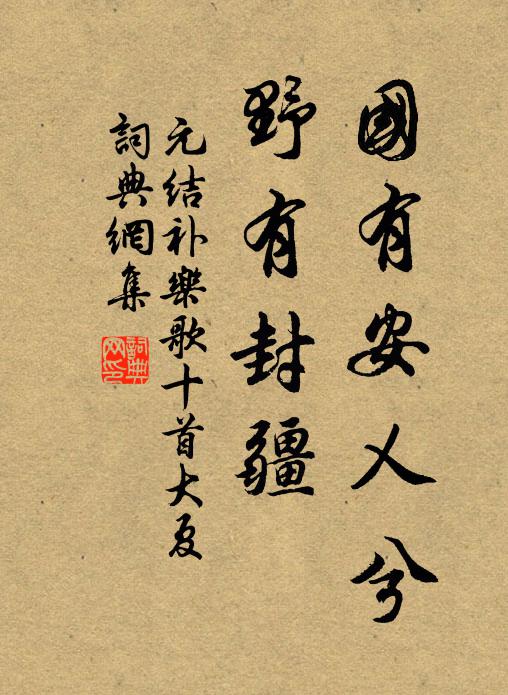 國有安乂兮
野有封疆
元结补樂歌十首大夏
詞典網集
詞典
网印